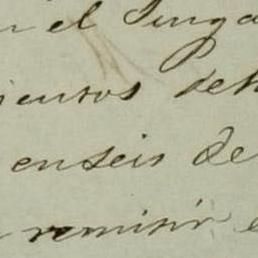 n el Juzga
ientos de
en seis de
remitir e